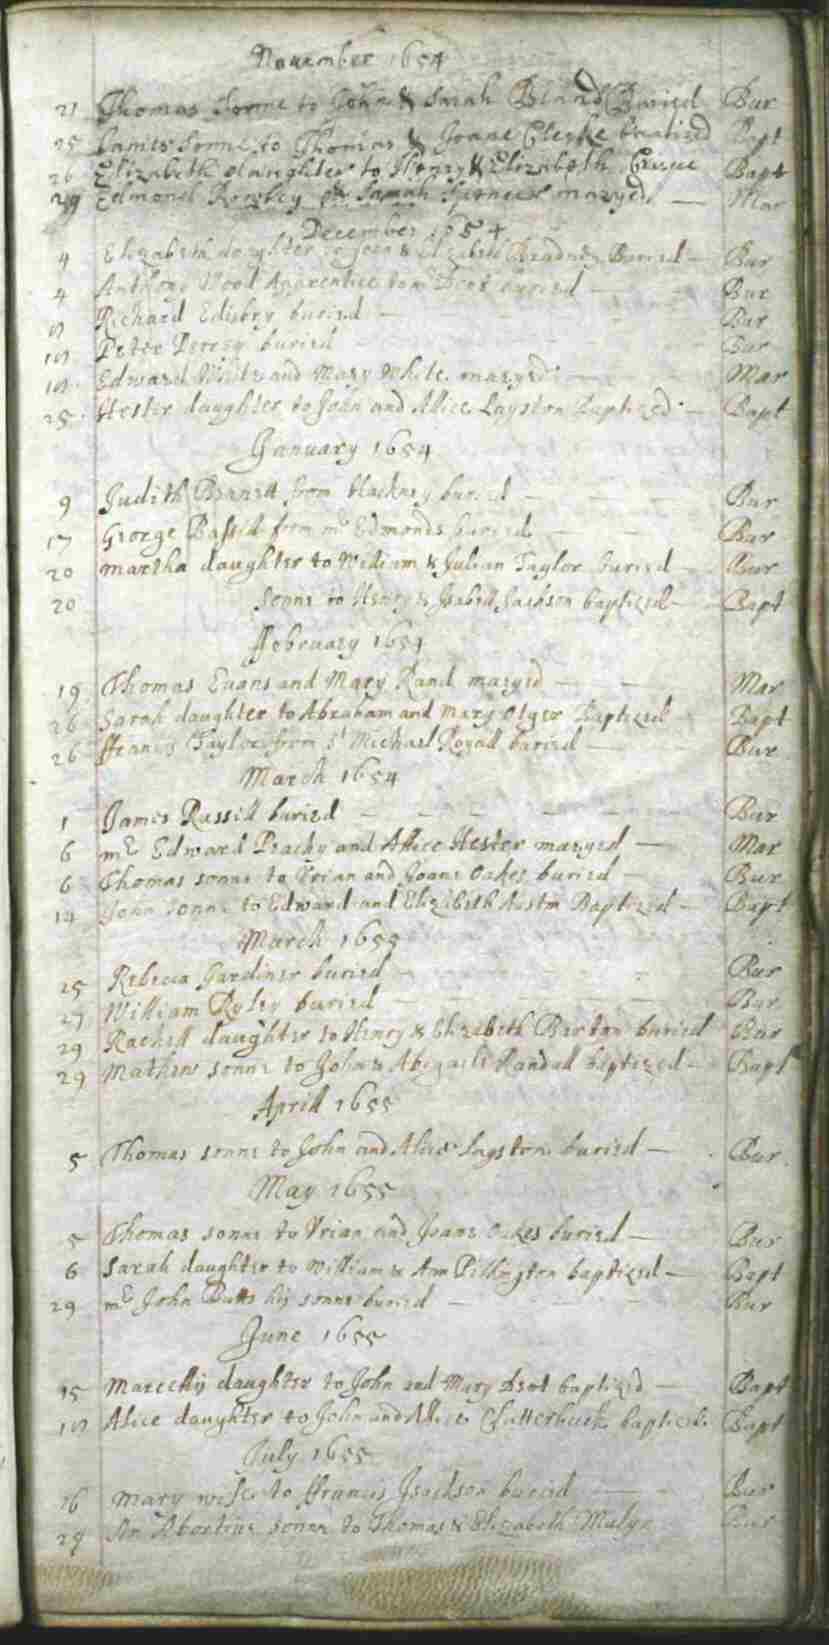 November 1654
21 Thomas Sonne to John & Sarah Bland Buried Bur
25 James Sonne to Thomas & Joane Clerke baptized Bapt
26 Elizabeth daughter to Henry & Elizabeth Bapt
29 Edmond Rowley Sarah maryed Mar
December 1654
4 Elizabeth daughter to John & Elizabeth Bradney Buried Bur
4 Anthony Wood Apprentice to mr buried Bur
Richard Edisbry buried Bur
Peter Percey buried Bur
Edward White and Mary White maryed Mar
25 Hester daughter to John and Allice Layston Baptized Bapt
January 1654
9 Judith from Hackney buried Bur
17 George Bassill from mr Edmonds buried Bur
20 martha daughter to William & Julian Taylor buried Bur
20 Sonne to Henry & Isabell Jackson baptized Bapt
ffebruary 1654
19 Thomas Euans and Mary Rand maryed Mar
26 Sarah daughter to Abraham and Mary Olyer Baptized Bapt
26 ffrancis Taylor from St Michael Royall buried Bur
March 1654
1 James Russill buried Bur
6 mr Edward Peachy and Allice Hester maryed Mar
6 Thomas sonne to Vrian and Joane Oakes buried Bur
14 John sonne to Edward and Elizabeth Austin Baptized Bapt
March 1655
25 Rebecca Gardiner buried Bur
27 William Ryley buried Bur
29 Rachell daughter to Henry & Elizabeth Barton buried Bur
29 Mathew sonne to John & Abigaile Randall baptized Bapt
Aprill 1655
5 Thomas sonne to John and Alice Layston buried Bur
May 1655
5 Thomas sonne to Vrian and Joane Oakes buried Bur
6 Sarah daughter to William & Ann Pilkington baptized Bapt
29 mr John Butts his sonne buried Bur
June 1655
15 daughter to John and Mary baptized Bapt
Alice daughter to John and Allice Clutterbuck baptized Bapt
July 1655
16 Mary wife to ffrancis Jsackson buried Bur
29 An Abortive sonne to Thomas & Elizabeth Bur